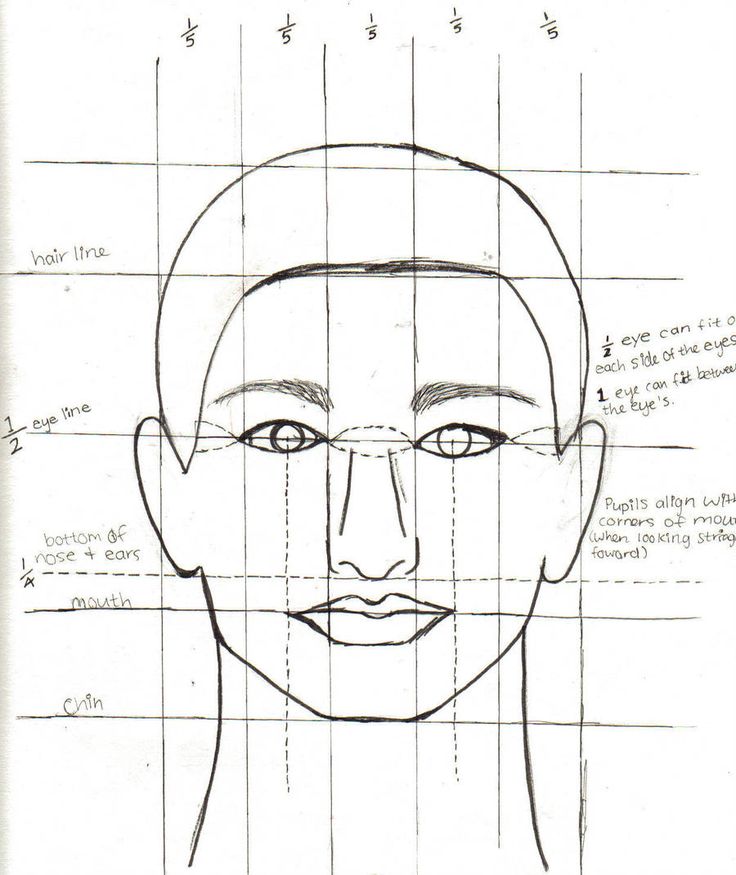 1/5 1/5 1/5 1/5 1/5
hair line
1/2 eye can fit o
each side of the eyes
1 eye can fit between
the eye's.
1/2 eye line
Pupils align with
corners of mou
(when looking straig
foward)
bottom of
nose + ears
1/4
mouth
Chin